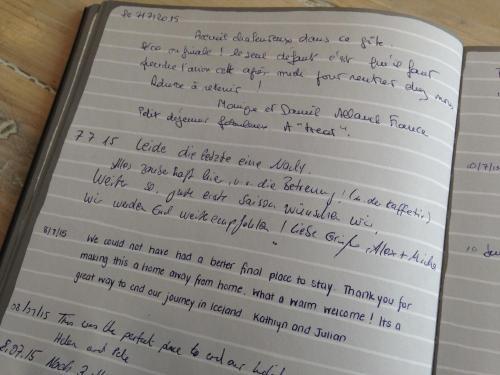 Le 7/7/2015
Accueil chaleureux dans ce gîte.
Déco originale ! le seul défaut c'est qu'il faut
prendre l'avion cette après midi pour rentrer chez nous,
Adresse à retenir !
Monique et Daniel France
Petit déjeuner "A treat".
7 7 15 Leide die letzte eine Nacht.
Alles zauberhaft hier, u.v. die Betreuung! (u. der Kaffee)
Weiter so, gute erste Saison wünschen wir,
Wir werden Euch weiterempfehlen! Liebe Grüße, Alex + Micha
8/7/15 We could not have had a better final place to stay. Thank you for
making this a home away from home. What a warm welcome! Its a
great way to end our journey in Iceland. Kathryn and Julian
08/07/15 This was the perfect place to end our
Helen and Pete
8.07.15 Nach
10/7/15